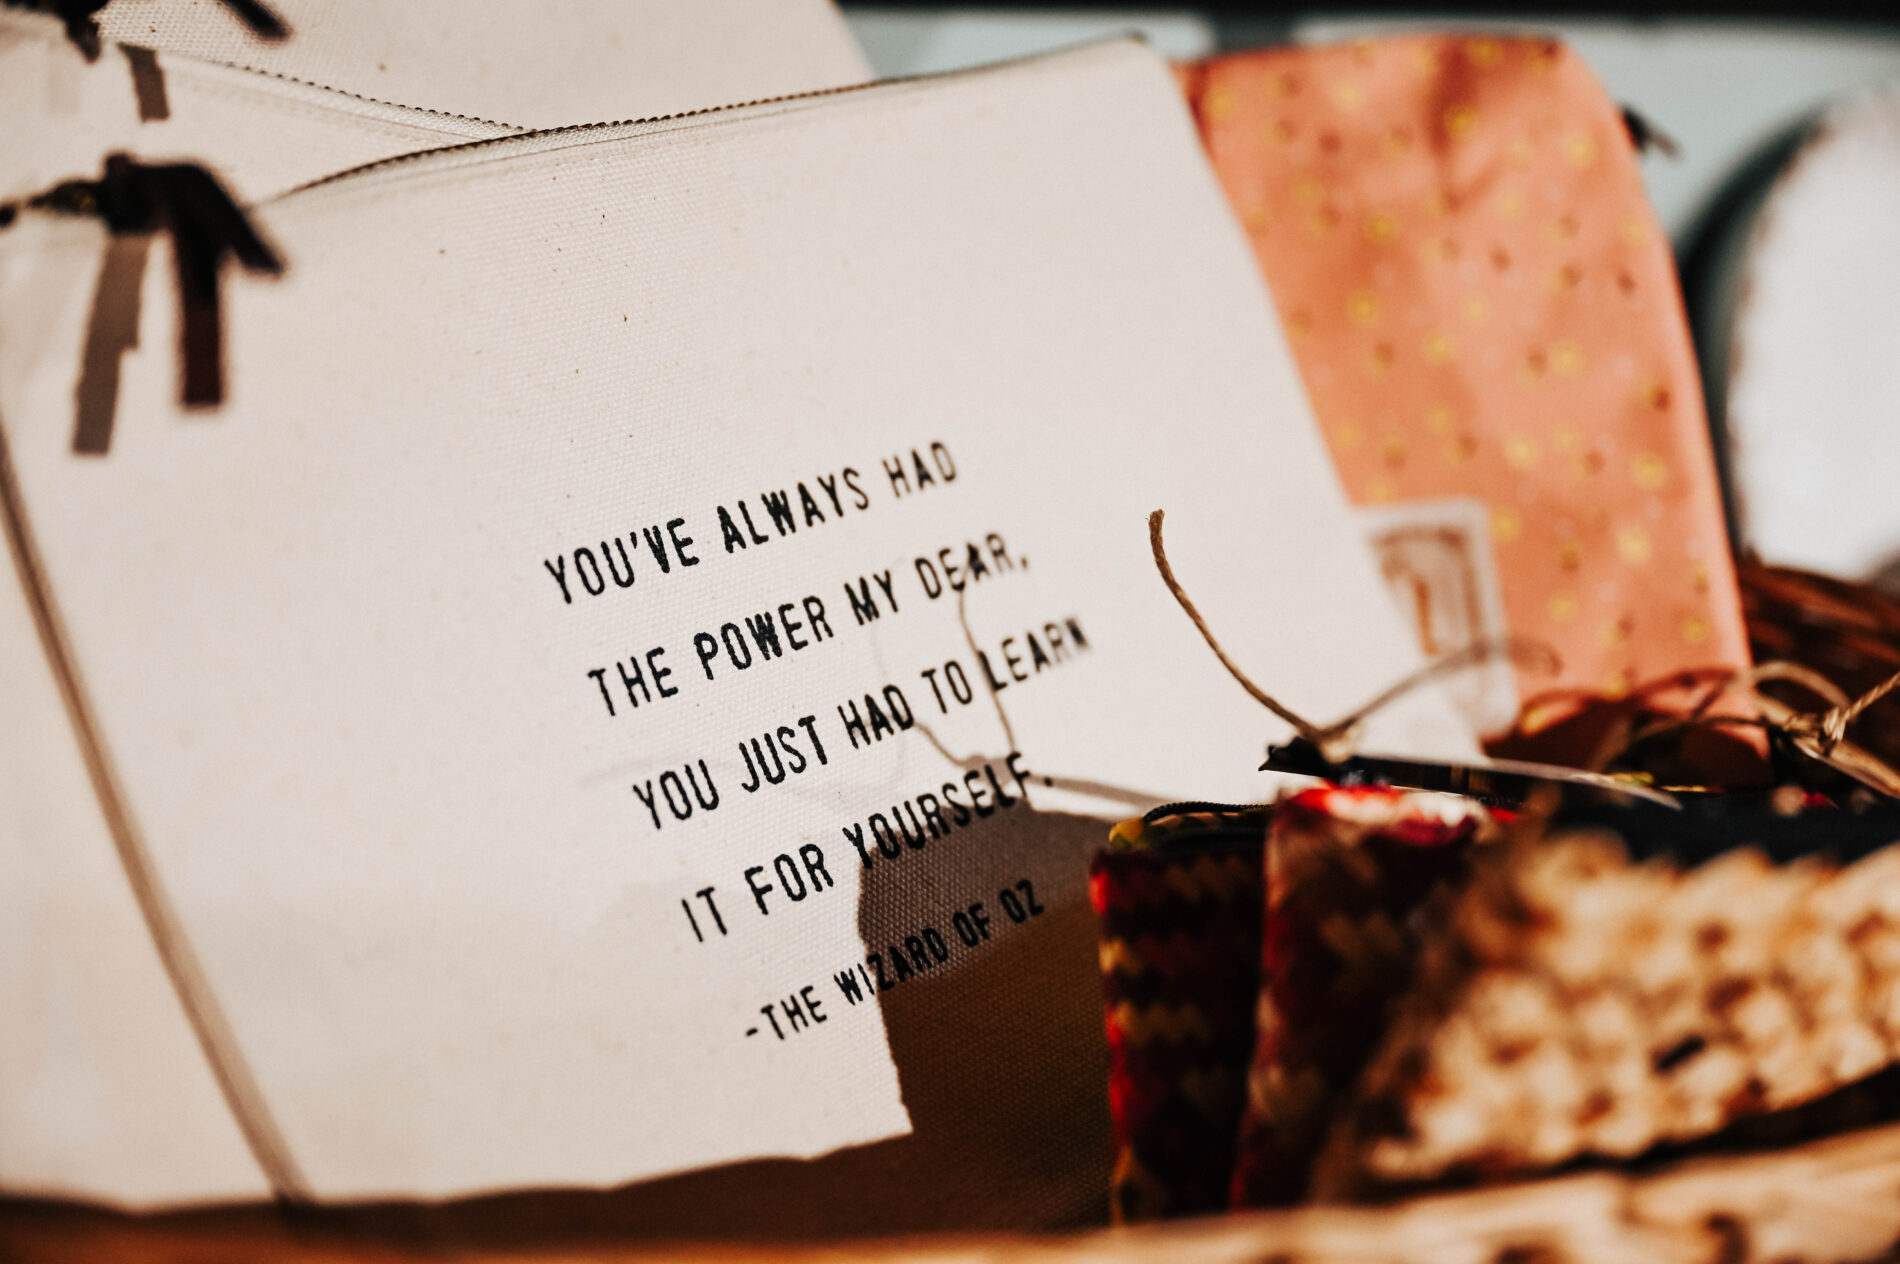 YOU'VE ALWAYS HAD
THE POWER MY DEAR,
YOU JUST HAD TO LEARN
IT FOR YOURSELF.
-THE WIZARD OF OZ